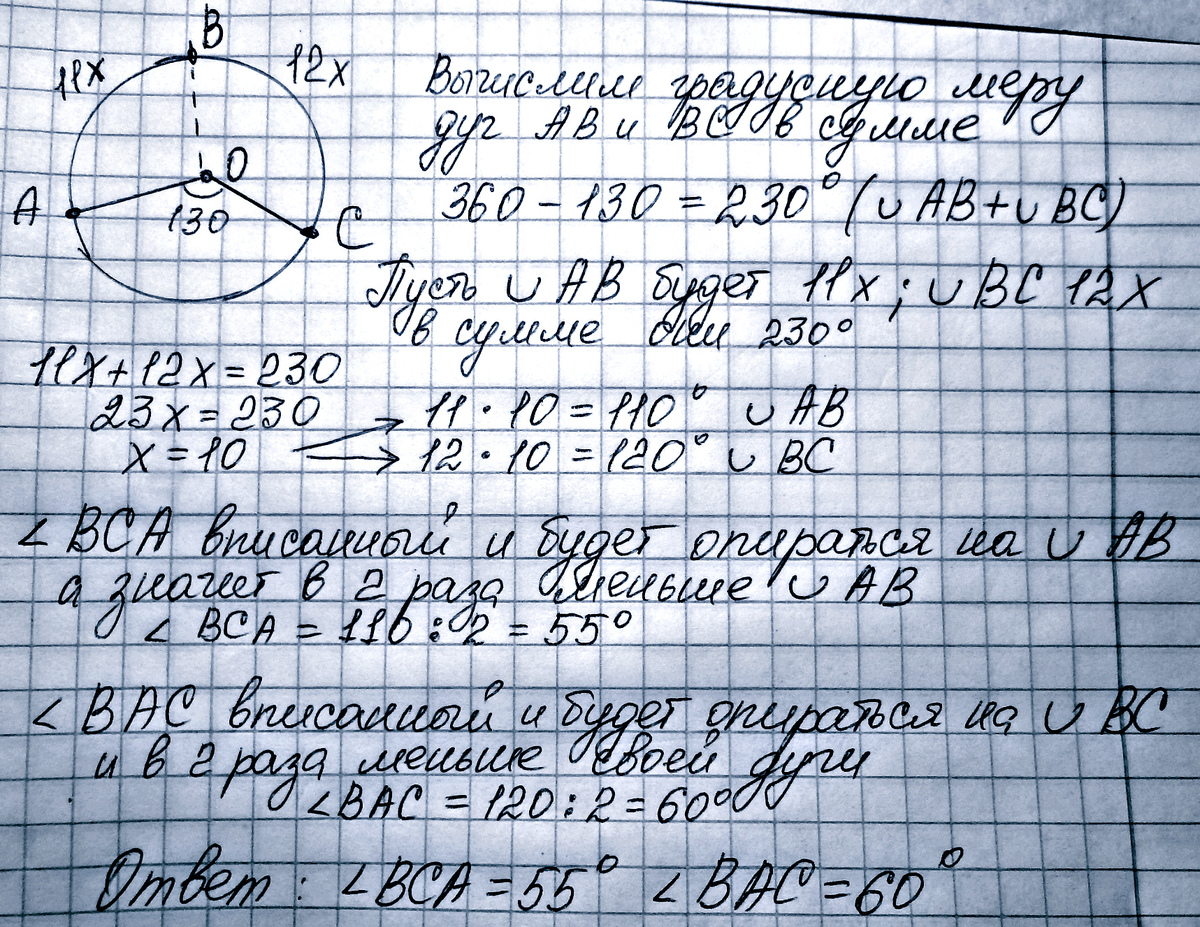 B
11x
12x
O
A
130
C
Вычислим градусную меру
дуг AB и BC в сумме
360 - 130 = 230° (∪ AB + ∪ BC)
Пусть ∪ AB будет 11x ; ∪ BC 12x
в сумме они 230°
11x + 12x = 230
23x = 230
x = 10
11 · 10 = 110° ∪ AB
12 · 10 = 120° ∪ BC
∠ BCA вписанный и будет опираться на ∪ AB
а значит в 2 раза меньше ∪ AB
∠ BCA = 110 : 2 = 55°
∠ BAC вписанный и будет опираться на ∪ BC
и в 2 раза меньше своей дуги
∠BAC = 120 : 2 = 60°
Ответ : ∠BCA = 55° ∠ BAC = 60°